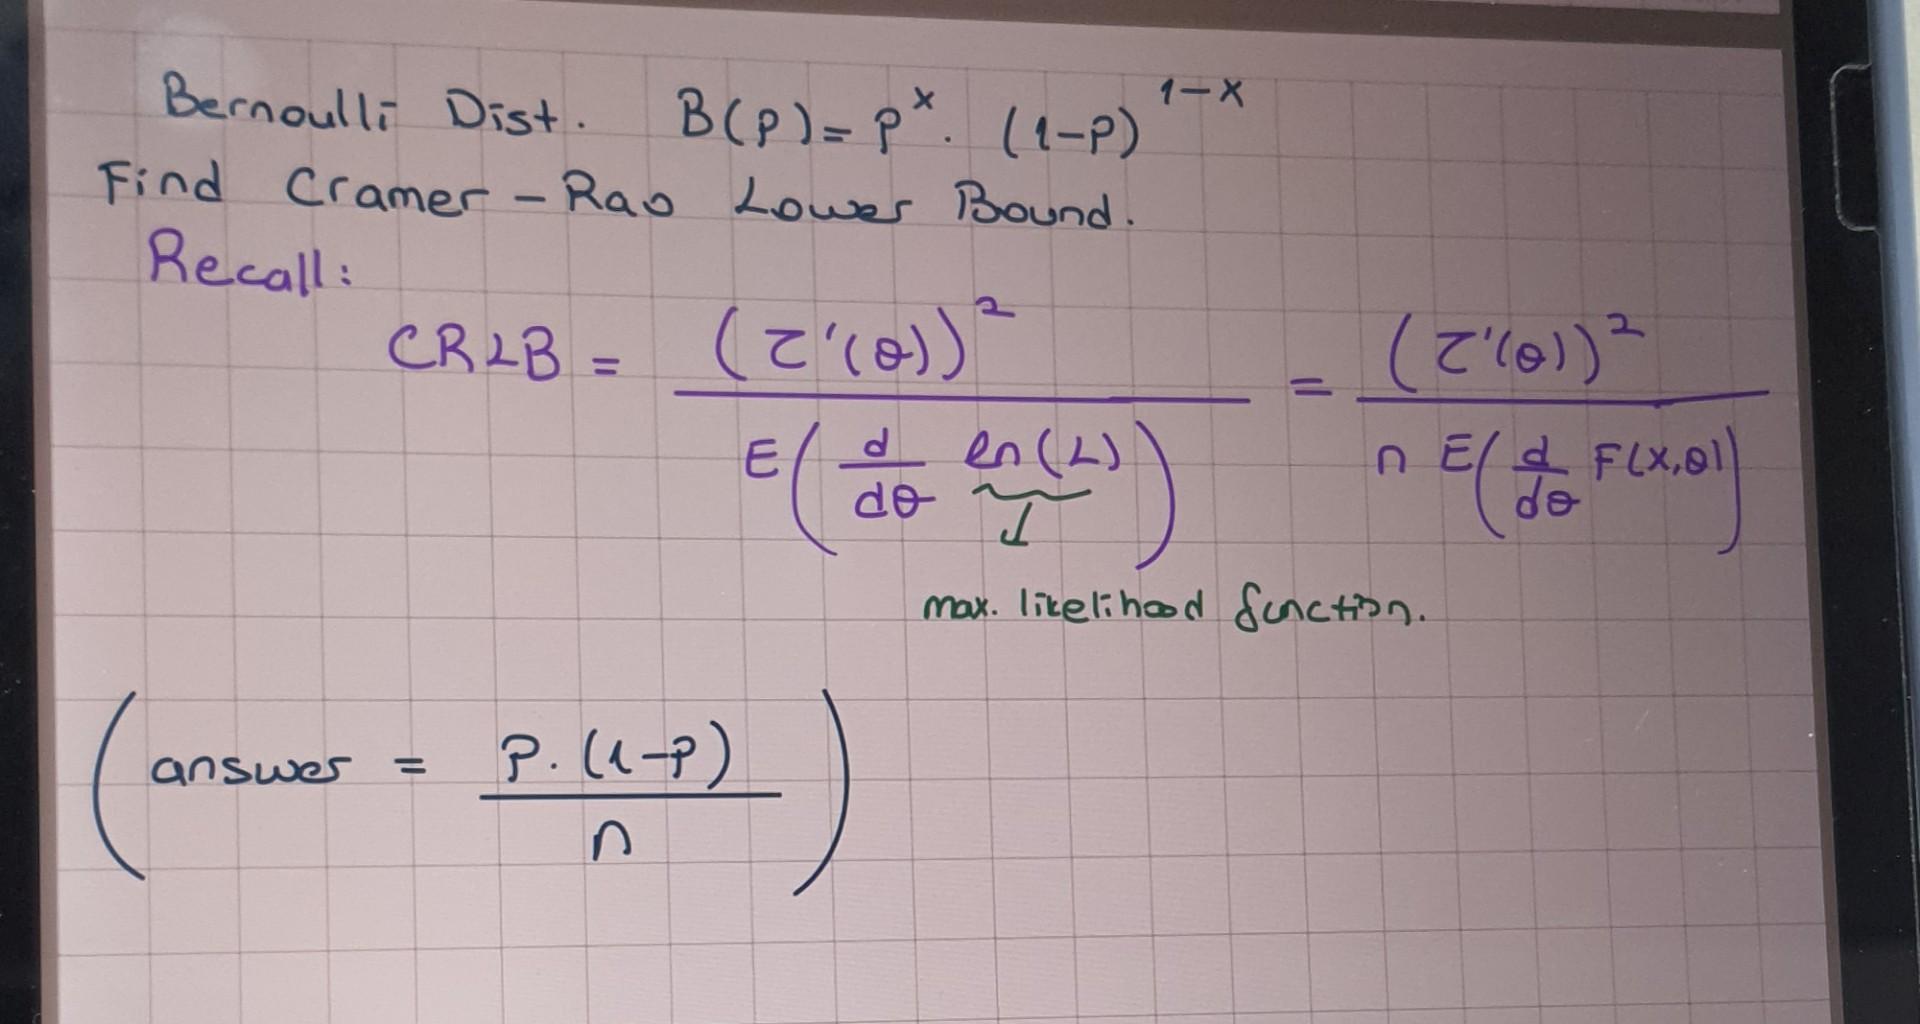 Bernoulli Dist. B(p) = p^x . (1-p)^{1-x}
Find Cramer-Rao Lower Bound.
Recall:
CRLB = (τ'(θ))^2 / E(d/dθ ln(L)) = (τ'(θ))^2 / n E(d/dθ F(x,θ))
↓
max. likelihood function.
(answer = p.(1-p) / n)